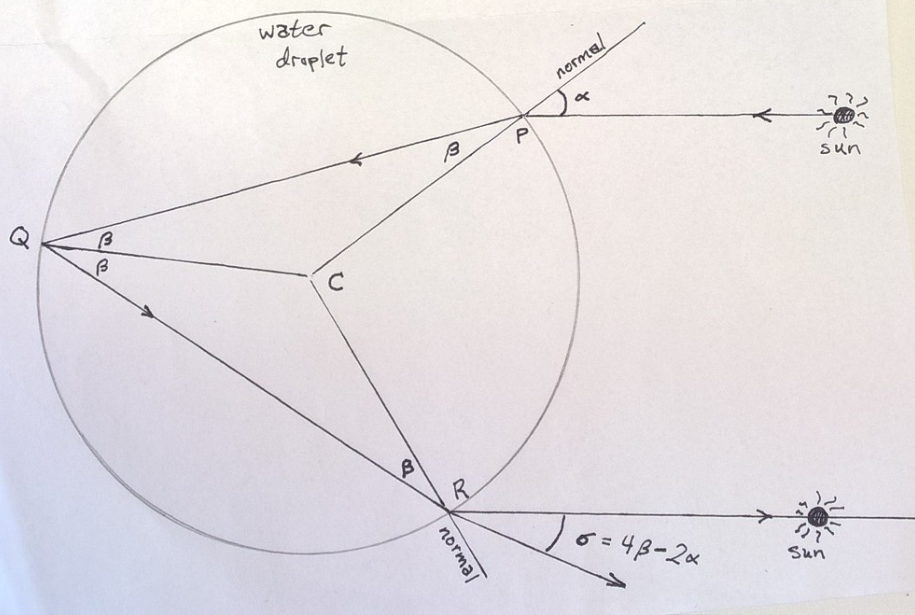 water
droplet
normal
α
P
sun
β
Q
β
β
C
β
R
normal
σ = 4β-2α
sun